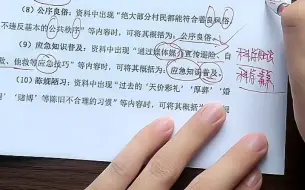 （8）公序良俗：资料中出现“绝大部分村民都能符合善良风俗，
不违反基本的公共秩序”等内容时，可将其概括为：公序良俗。
（9）应急知识普及：资料中出现“通过媒体媒介宣传避险、自
救、他救等应急技巧”等内容时，可将其概括为：应急知识普及。
（10）陈规陋习：资料中出现“过去的‘天价彩礼’‘厚葬’‘婚
’‘赌博’等陈旧不合理的习惯”等内容时，可将其概括为：